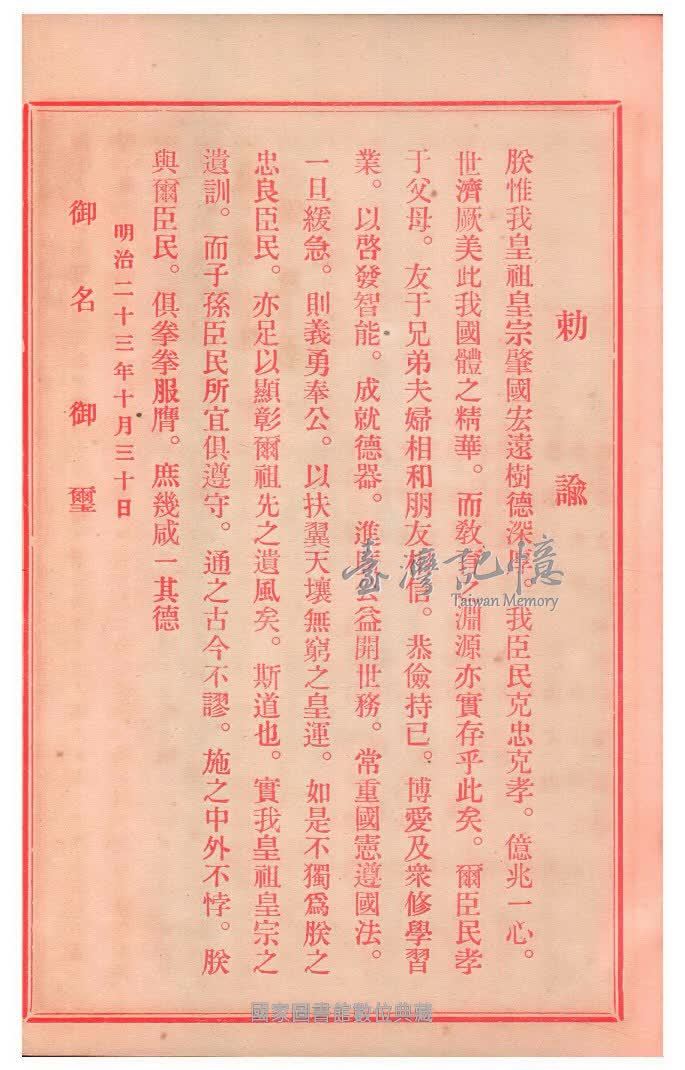 勅諭
朕惟我皇祖皇宗肇國宏遠樹德深厚。我臣民克忠克孝。億兆一心。
世濟厥美此我國體之精華。而敎育之淵源亦實存乎此矣。爾臣民孝
于父母。友于兄弟夫婦相和朋友相信。恭儉持己。博愛及衆修學習
業。以啓發智能。成就德器。進廣公益開世務。常重國憲遵國法。
一旦緩急。則義勇奉公。以扶翼天壤無窮之皇運。如是不獨爲朕之
忠良臣民。亦足以顯彰爾祖先之遺風矣。斯道也。實我皇祖皇宗之
遺訓。而子孫臣民所宜俱遵守。通之古今不謬。施之中外不悖。朕
與爾臣民。俱拳拳服膺。庶幾咸一其德
明治二十三年十月三十日
御名御璽
臺灣記憶
Taiwan Memory
國家圖書館數位典藏